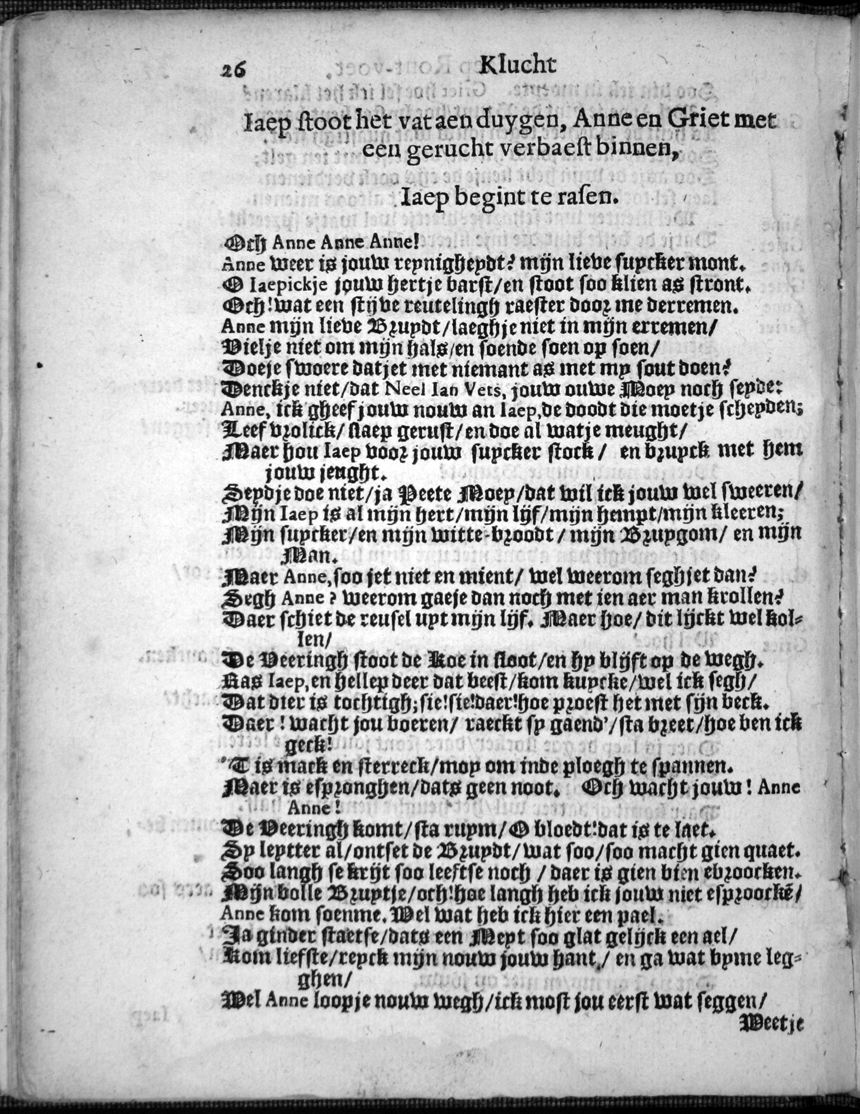 26 Klucht
Iaep stoot het vat aen duygen, Anne en Griet met
een gerucht verbaest binnen,
Iaep begint te rasen.
Och Anne Anne Anne!
Anne weer is jouw reynigheydt? mijn lieve suycker mont.
O Iaepickje jouw hertje barst/en stoot soo klien as stront.
Och! wat een stijve reutelingh raester door me derremen.
Anne mijn lieve Bruydt/laeghje niet in mijn erremen/
Vielje niet om mijn hals/en soende soen op soen/
Doeje swoere datjet met niemant as met my sout doen?
Denckje niet/dat Neel Ian Vets, jouw ouwe Moey noch seyde:
Anne, ick gheef jouw nouw an Iaep, de doodt die moetje scheyden;
Leef vrolick/ slaep gerust/en doe al watje meught/
Maer hou Iaep voor jouw suycker stock/ en bruyck met hem
jouw jeught.
Seydje doe niet/ja Peete Moey/dat wil ick jouw wel sweeren/
Mijn Iaep is al mijn hert/mijn lijf/mijn hempt/mijn kleeren;
Mijn suycker/en mijn witte-broodt/ mijn Bruygom/ en mijn
Man.
Maer Anne, soo jet niet en mient/ wel weerom seghjet dan?
Segh Anne? weerom gaeje dan noch met ien aer man krollen?
Daer schiet de reusel uyt mijn lijf. Maer hoe/ dit lijckt wel kol-
len/
De Veeringh stoot de Koe in sloot/en hy blijft op de wegh.
Ras Iaep, en hellep deer dat beest/kom kuycke/wel ick segh/
Dat dier is tochtigh; sie! sie! daer! hoe proest het met sijn beck.
Daer! wacht jou boeren/ raeckt sy gaend'/sta breet/hoe ben ick
geck!
'T is mack en sterreck/moy om inde ploegh te spannen.
Maer is espronghen/dats geen noot. Och wacht jouw! Anne
Anne!
De Veeringh komt/sta ruym/O bloedt! dat is te laet.
Sy leytter al/ontset de Bruydt/wat soo/soo macht gien quaet.
Soo langh se krijt soo leeftse noch/ daer is gien bien ebroocken.
Mijn bolle Bruytje/och! hoe langh heb ick jouw niet esproockẽ/
Anne kom soenme. Wel wat heb ick hier een pael.
Ja ginder staetse/dats een Meyt soo glat gelijck een ael/
Kom liefste/reyck mijn nouw jouw hant/ en ga wat byme leg-
ghen/
Wel Anne loopje nouw wegh/ick most jou eerst wat seggen/
Weetje